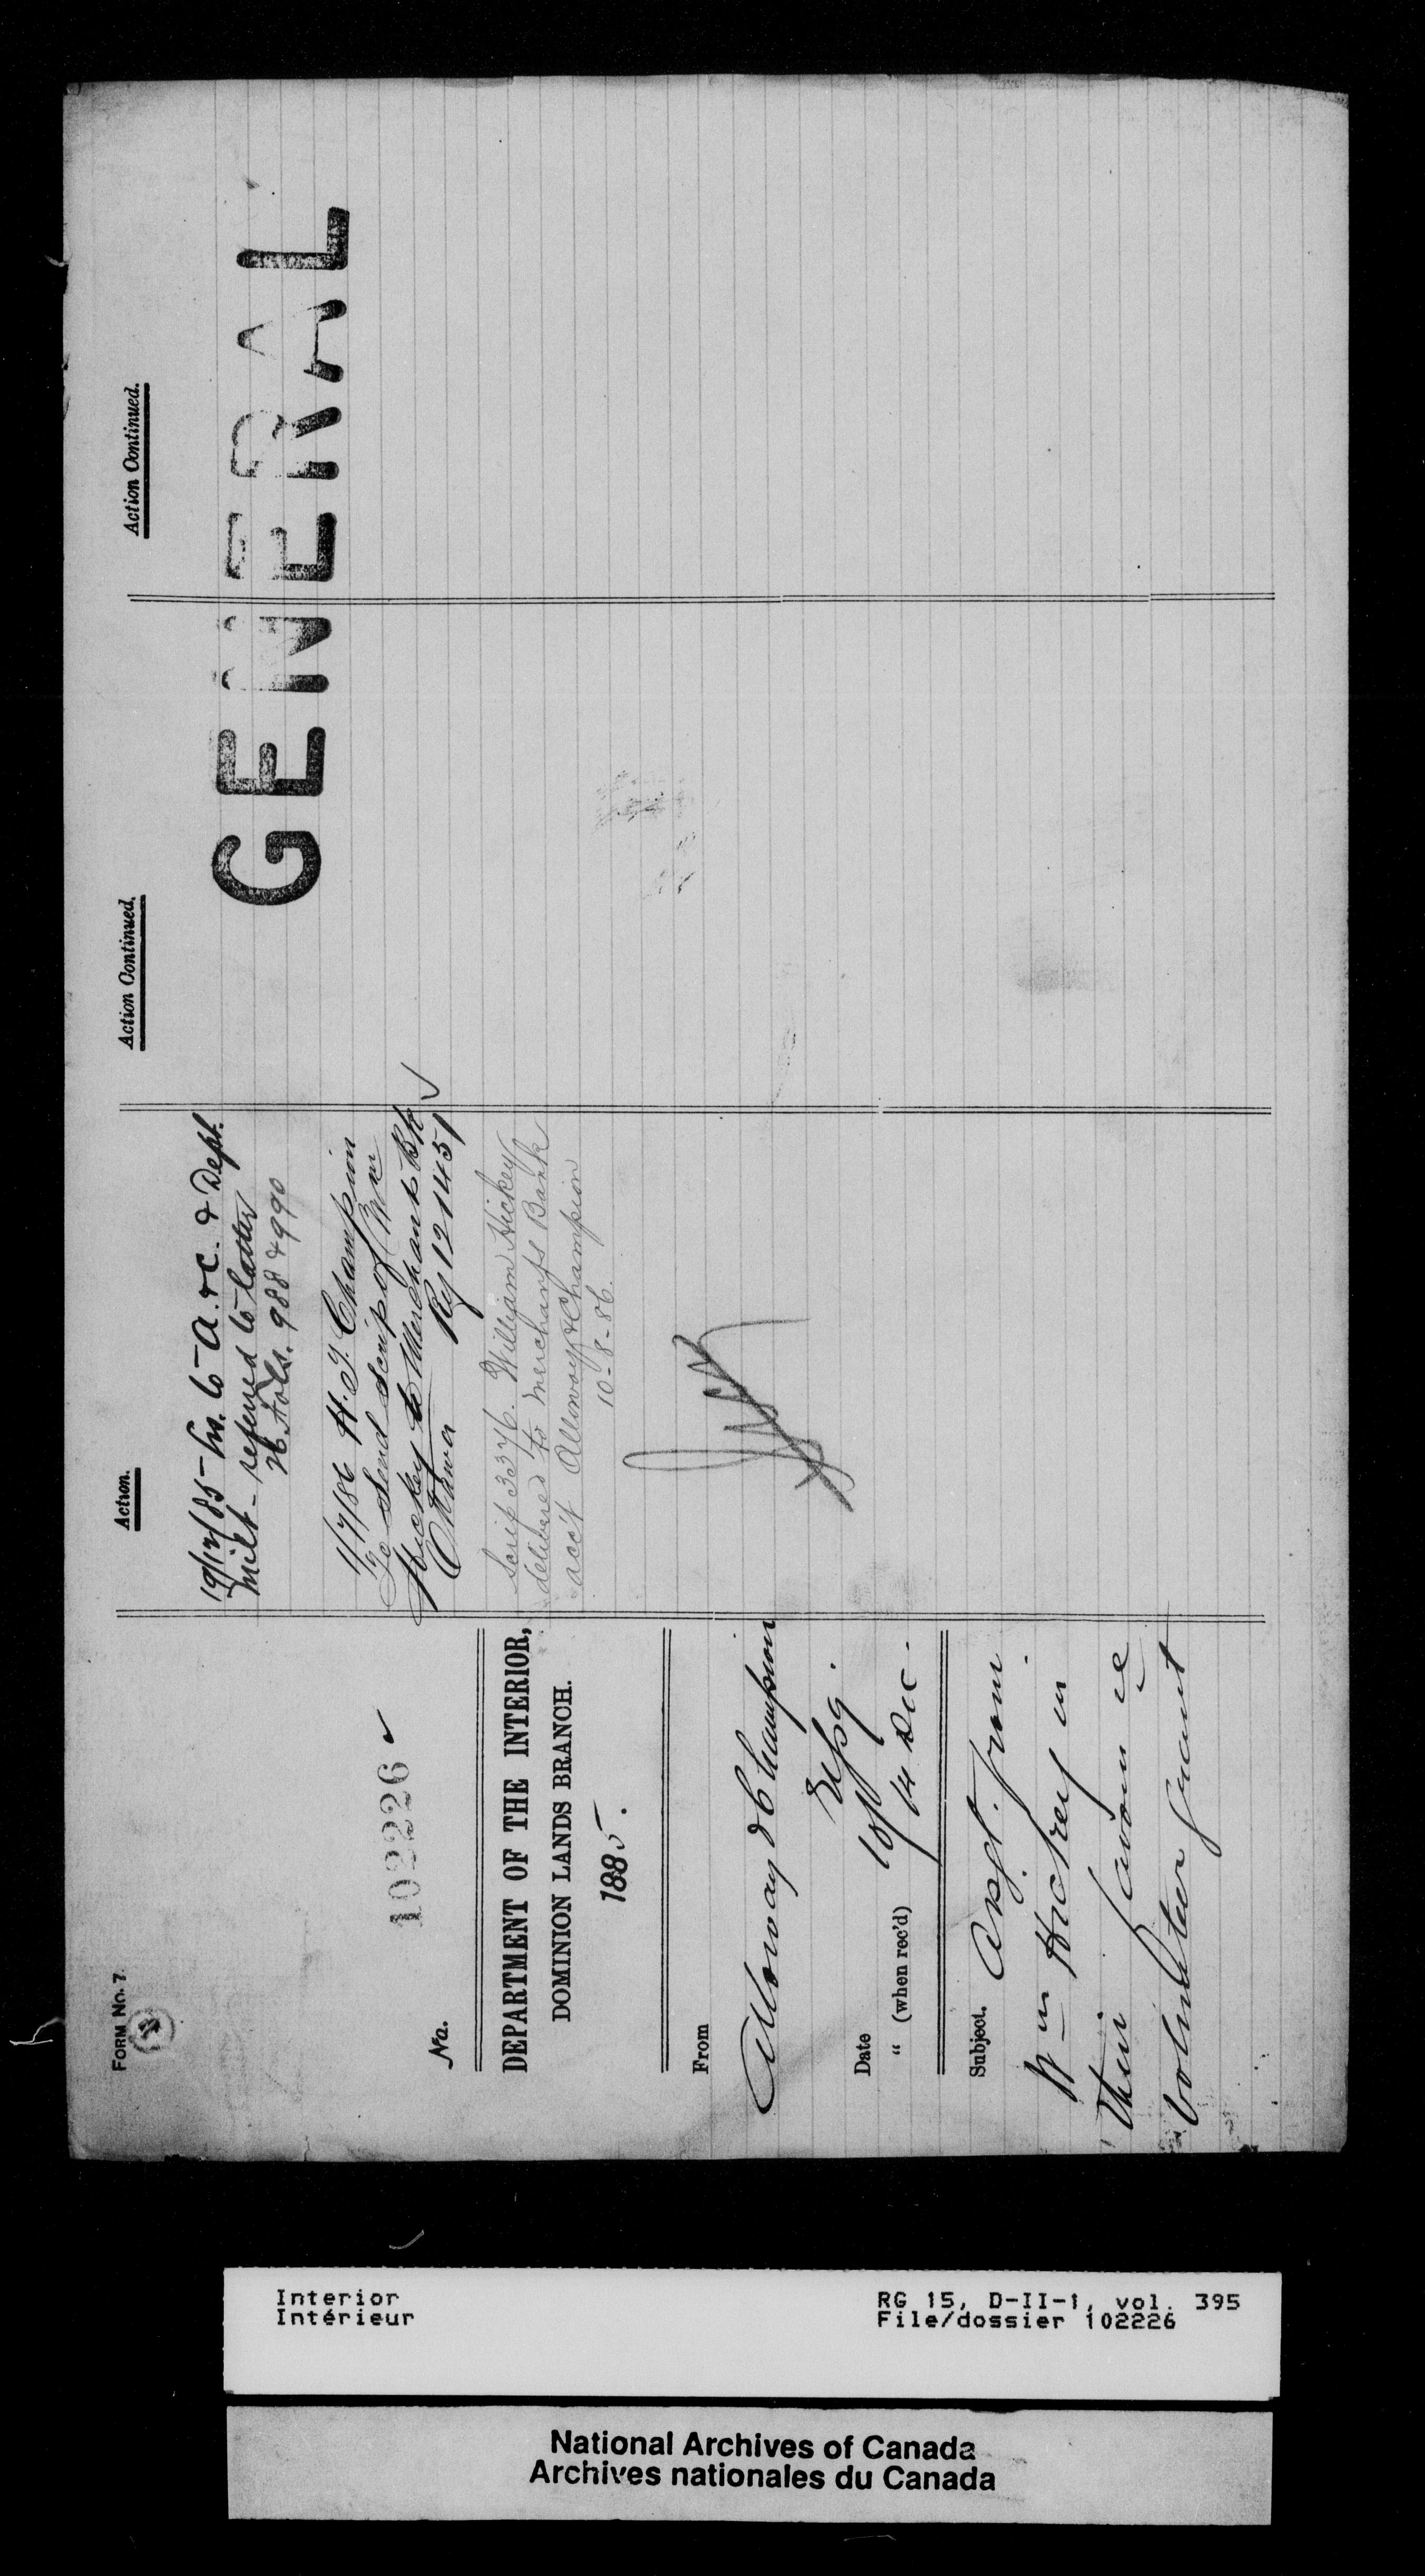 FORM No. 7.
102226 ✓
No.
DEPARTMENT OF THE INTERIOR,
DOMINION LANDS BRANCH.
1885.
From
Alloway & Champion
Wpg.
Date 10/
" (when rec'd) 14 Dec.
Subject. Asgt. from
Wm Hickey in
their favour re
volunteer grant
Action.
19/12/85 to A. & C. & Dept.
Milt - referred to latter
fols. 988 & 990
1/7/86 H. T. Champion
To send scrip of Wm
Hickey to Merchants Bk ✓
Ottawa Ref 121451
Scrip 3376. William Hickey
delivered to Merchants Bank
acc't Alloway & Champion
10-8-86.
Action Continued.
Action Continued.
GENERAL
Interior
Intérieur
RG 15, D-II-1, vol. 395
File/dossier 102226
National Archives of Canada
Archives nationales du Canada